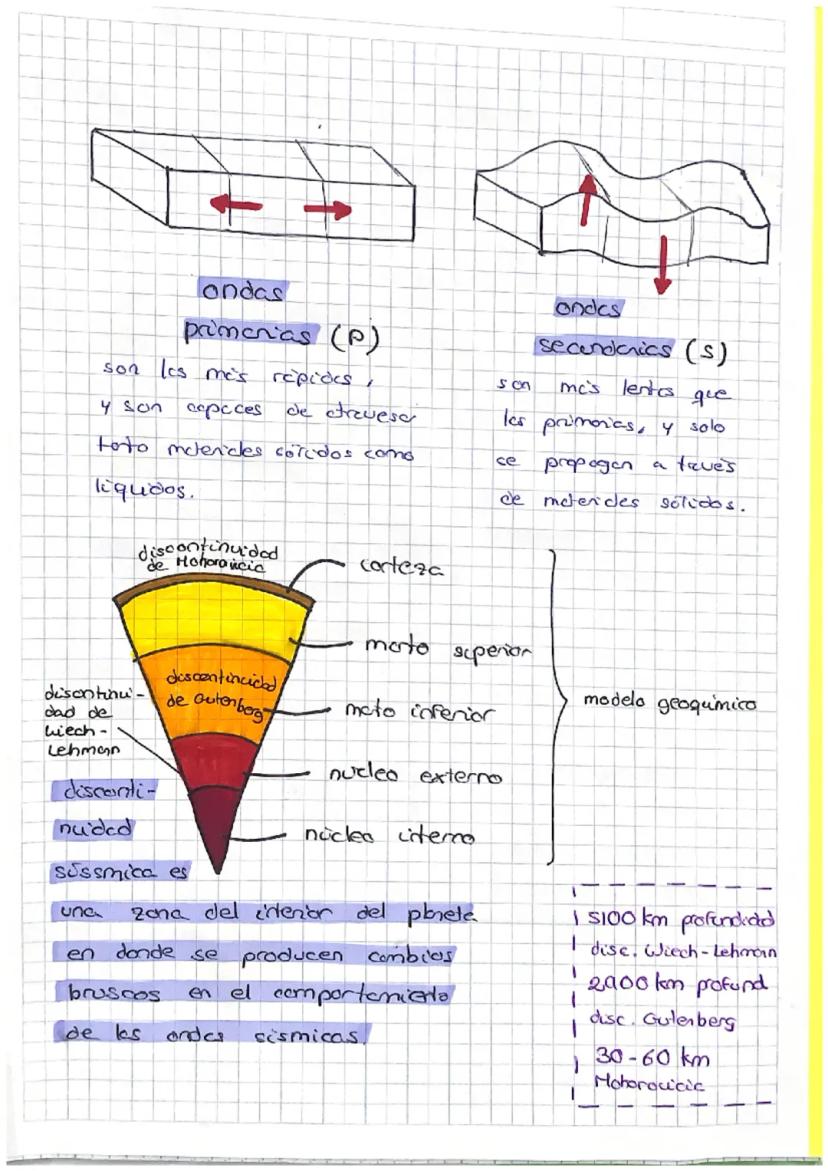 ondas
primarias (P)
son las más rápidas,
y son capaces de atravesar
tanto materiales sólidos como
líquidos.
ondas
secundarias (S)
son más lentas que
las primarias, y solo
se propagan a través
de materiales sólidos.
discontinuidad
de Mohorovicic
corteza
manto superior
discontinuidad
de Gutenberg
manto inferior
discontinui-
dad de
Wiech-
Lehmann
nucleo externo
núcleo interno
modelo geoquímico
disconti-
nuidad
síssmica es
una zona del interior del planeta
en donde se producen cambios
bruscos en el comportamiento
de las ondas sísmicas.
5100 km profundidad
disc. Wiech-Lehmann
2900 km profund
disc. Gutenberg
30-60 km
Mohorovicic